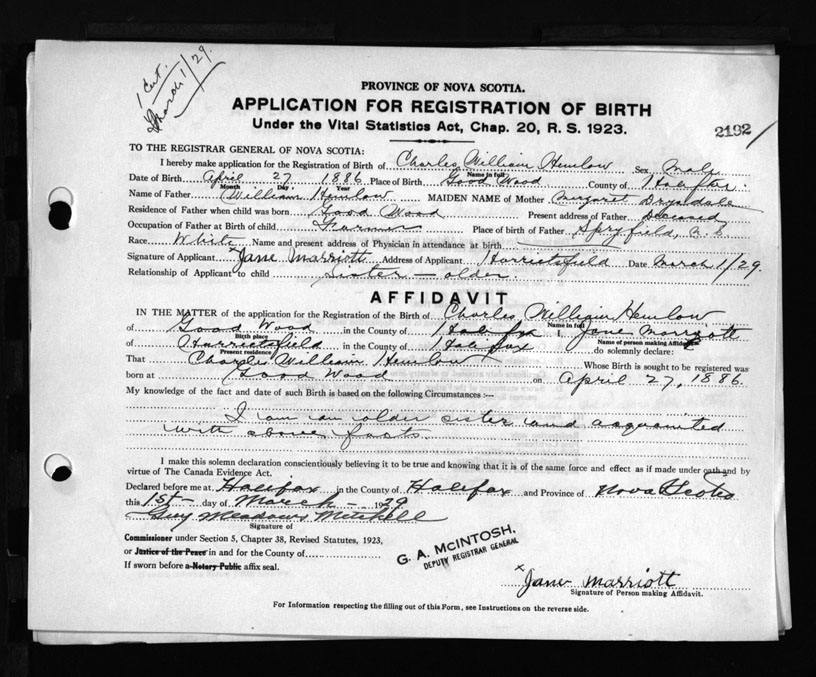 1 Cert.
March 1/29.
PROVINCE OF NOVA SCOTIA.
APPLICATION FOR REGISTRATION OF BIRTH
Under the Vital Statistics Act, Chap. 20, R. S. 1923.
2192
TO THE REGISTRAR GENERAL OF NOVA SCOTIA:
I hereby make application for the Registration of Birth of Charles William Hemlow Sex Male
Name in full
Date of Birth April 27 1886 Place of Birth Good Wood County of Halifax.
Month Day Year
Name of Father William Hemlow MAIDEN NAME of Mother Margaret Drysdale
Residence of Father when child was born Good Wood Present address of Father Deceased
Occupation of Father at Birth of child Farmer Place of birth of Father Spryfield, N. S
Race White Name and present address of Physician in attendance at birth
Signature of Applicant x Jane Marriott Address of Applicant Harrietsfield Date March 1/29.
Relationship of Applicant to child Sister — older.
AFFIDAVIT
IN THE MATTER of the application for the Registration of the Birth of Charles William Hemlow
Name in full
of Good Wood in the County of Halifax I, Jane Marriott
Birth place Name of person making Affidavit
of Harrietsfield in the County of Halifax do solemnly declare:
Present residence
That Charles William Hemlow Whose Birth is sought to be registered was
born at Good Wood on April 27, 1886.
My knowledge of the fact and date of such Birth is based on the following Circumstances :—
I am an older sister and acquainted
with above facts.
I make this solemn declaration conscientiously believing it to be true and knowing that it is of the same force and effect as if made under oath and by
virtue of The Canada Evidence Act.
Declared before me at Halifax in the County of Halifax and Province of Nova Scotia
this 1st day of March 1929
Guy Meadows Mitchell
Signature of
Commissioner under Section 5, Chapter 38, Revised Statutes, 1923,
or Justice of the Peace in and for the County of
If sworn before a Notary Public affix seal.
G. A. McINTOSH.
DEPUTY REGISTRAR GENERAL
x Jane Marriott
Signature of Person making Affidavit.
For Information respecting the filling out of this Form, see Instructions on the reverse side.